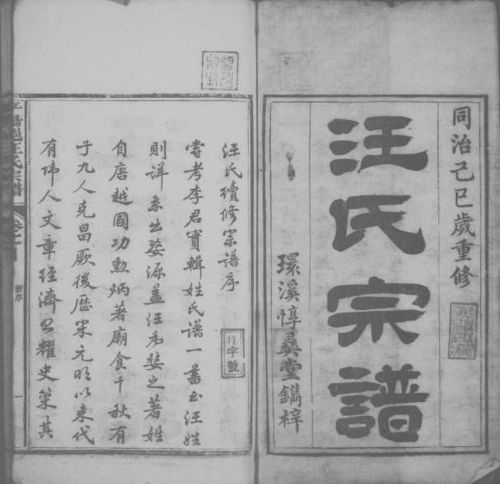 同治己巳歲重修
汪氏宗譜
環溪惇彞堂鐫梓
汪氏續修宗譜序
嘗考李君實輯姓氏譜一書汪姓
則詳系出婺源蓋汪爲婺之著姓
自唐越國功勳炳著廟食千秋有
子九人克昌厥後歷宋元明以來代
有偉人文章經濟照耀史策其
汪氏宗譜